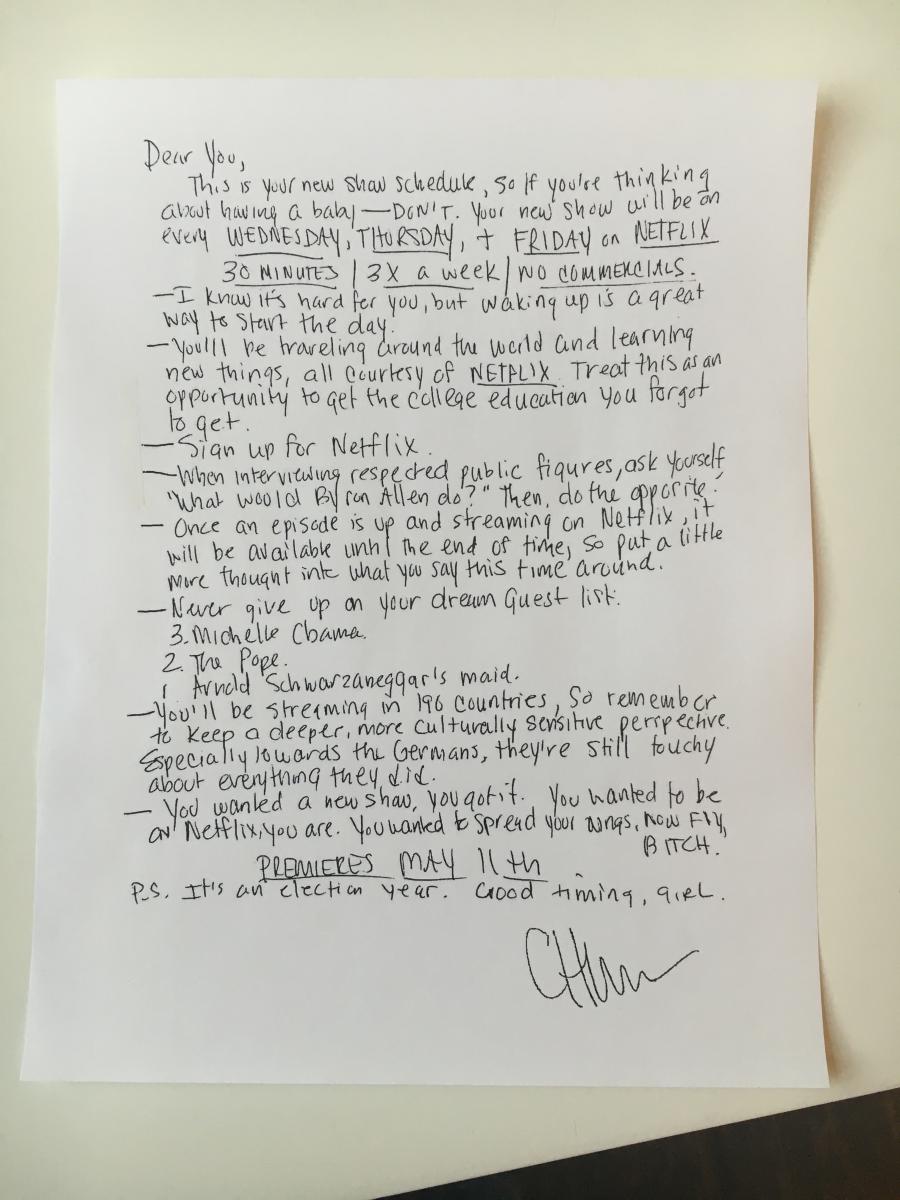 Dear You,
This is your new show schedule, so if you're thinking
about having a baby — DON'T. Your new show will be on
every WEDNESDAY, THURSDAY, + FRIDAY on NETFLIX
30 MINUTES | 3X a week | NO COMMERCIALS.
— I know it's hard for you, but waking up is a great
way to start the day.
— You'll be traveling around the world and learning
new things, all courtesy of NETFLIX. Treat this as an
opportunity to get the college education you forgot
to get.
— Sign up for Netflix.
— When interviewing respected public figures, ask yourself
"What would Byron Allen do?" Then, do the opposite.
— Once an episode is up and streaming on Netflix, it
will be available until the end of time, so put a little
more thought into what you say this time around.
— Never give up on your dream Guest list.
3. Michelle Obama.
2. The Pope.
1 Arnold Schwarzaneggar's maid.
— You'll be streaming in 190 countries, so remember
to keep a deeper, more culturally sensitive perspective.
Especially towards the Germans, they're still touchy
about everything they did.
— You wanted a new show, you got it. You wanted to be
on Netflix, you are. You wanted to spread your wings, now FLY,
BITCH.
PREMIERES MAY 11th.
P.S. It's an election year. Good timing, girl.